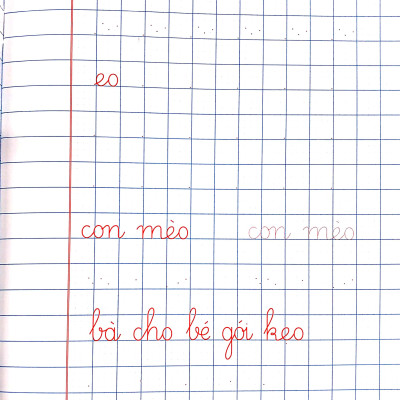 eo
con mèo con mèo
bà cho bé gói kẹo